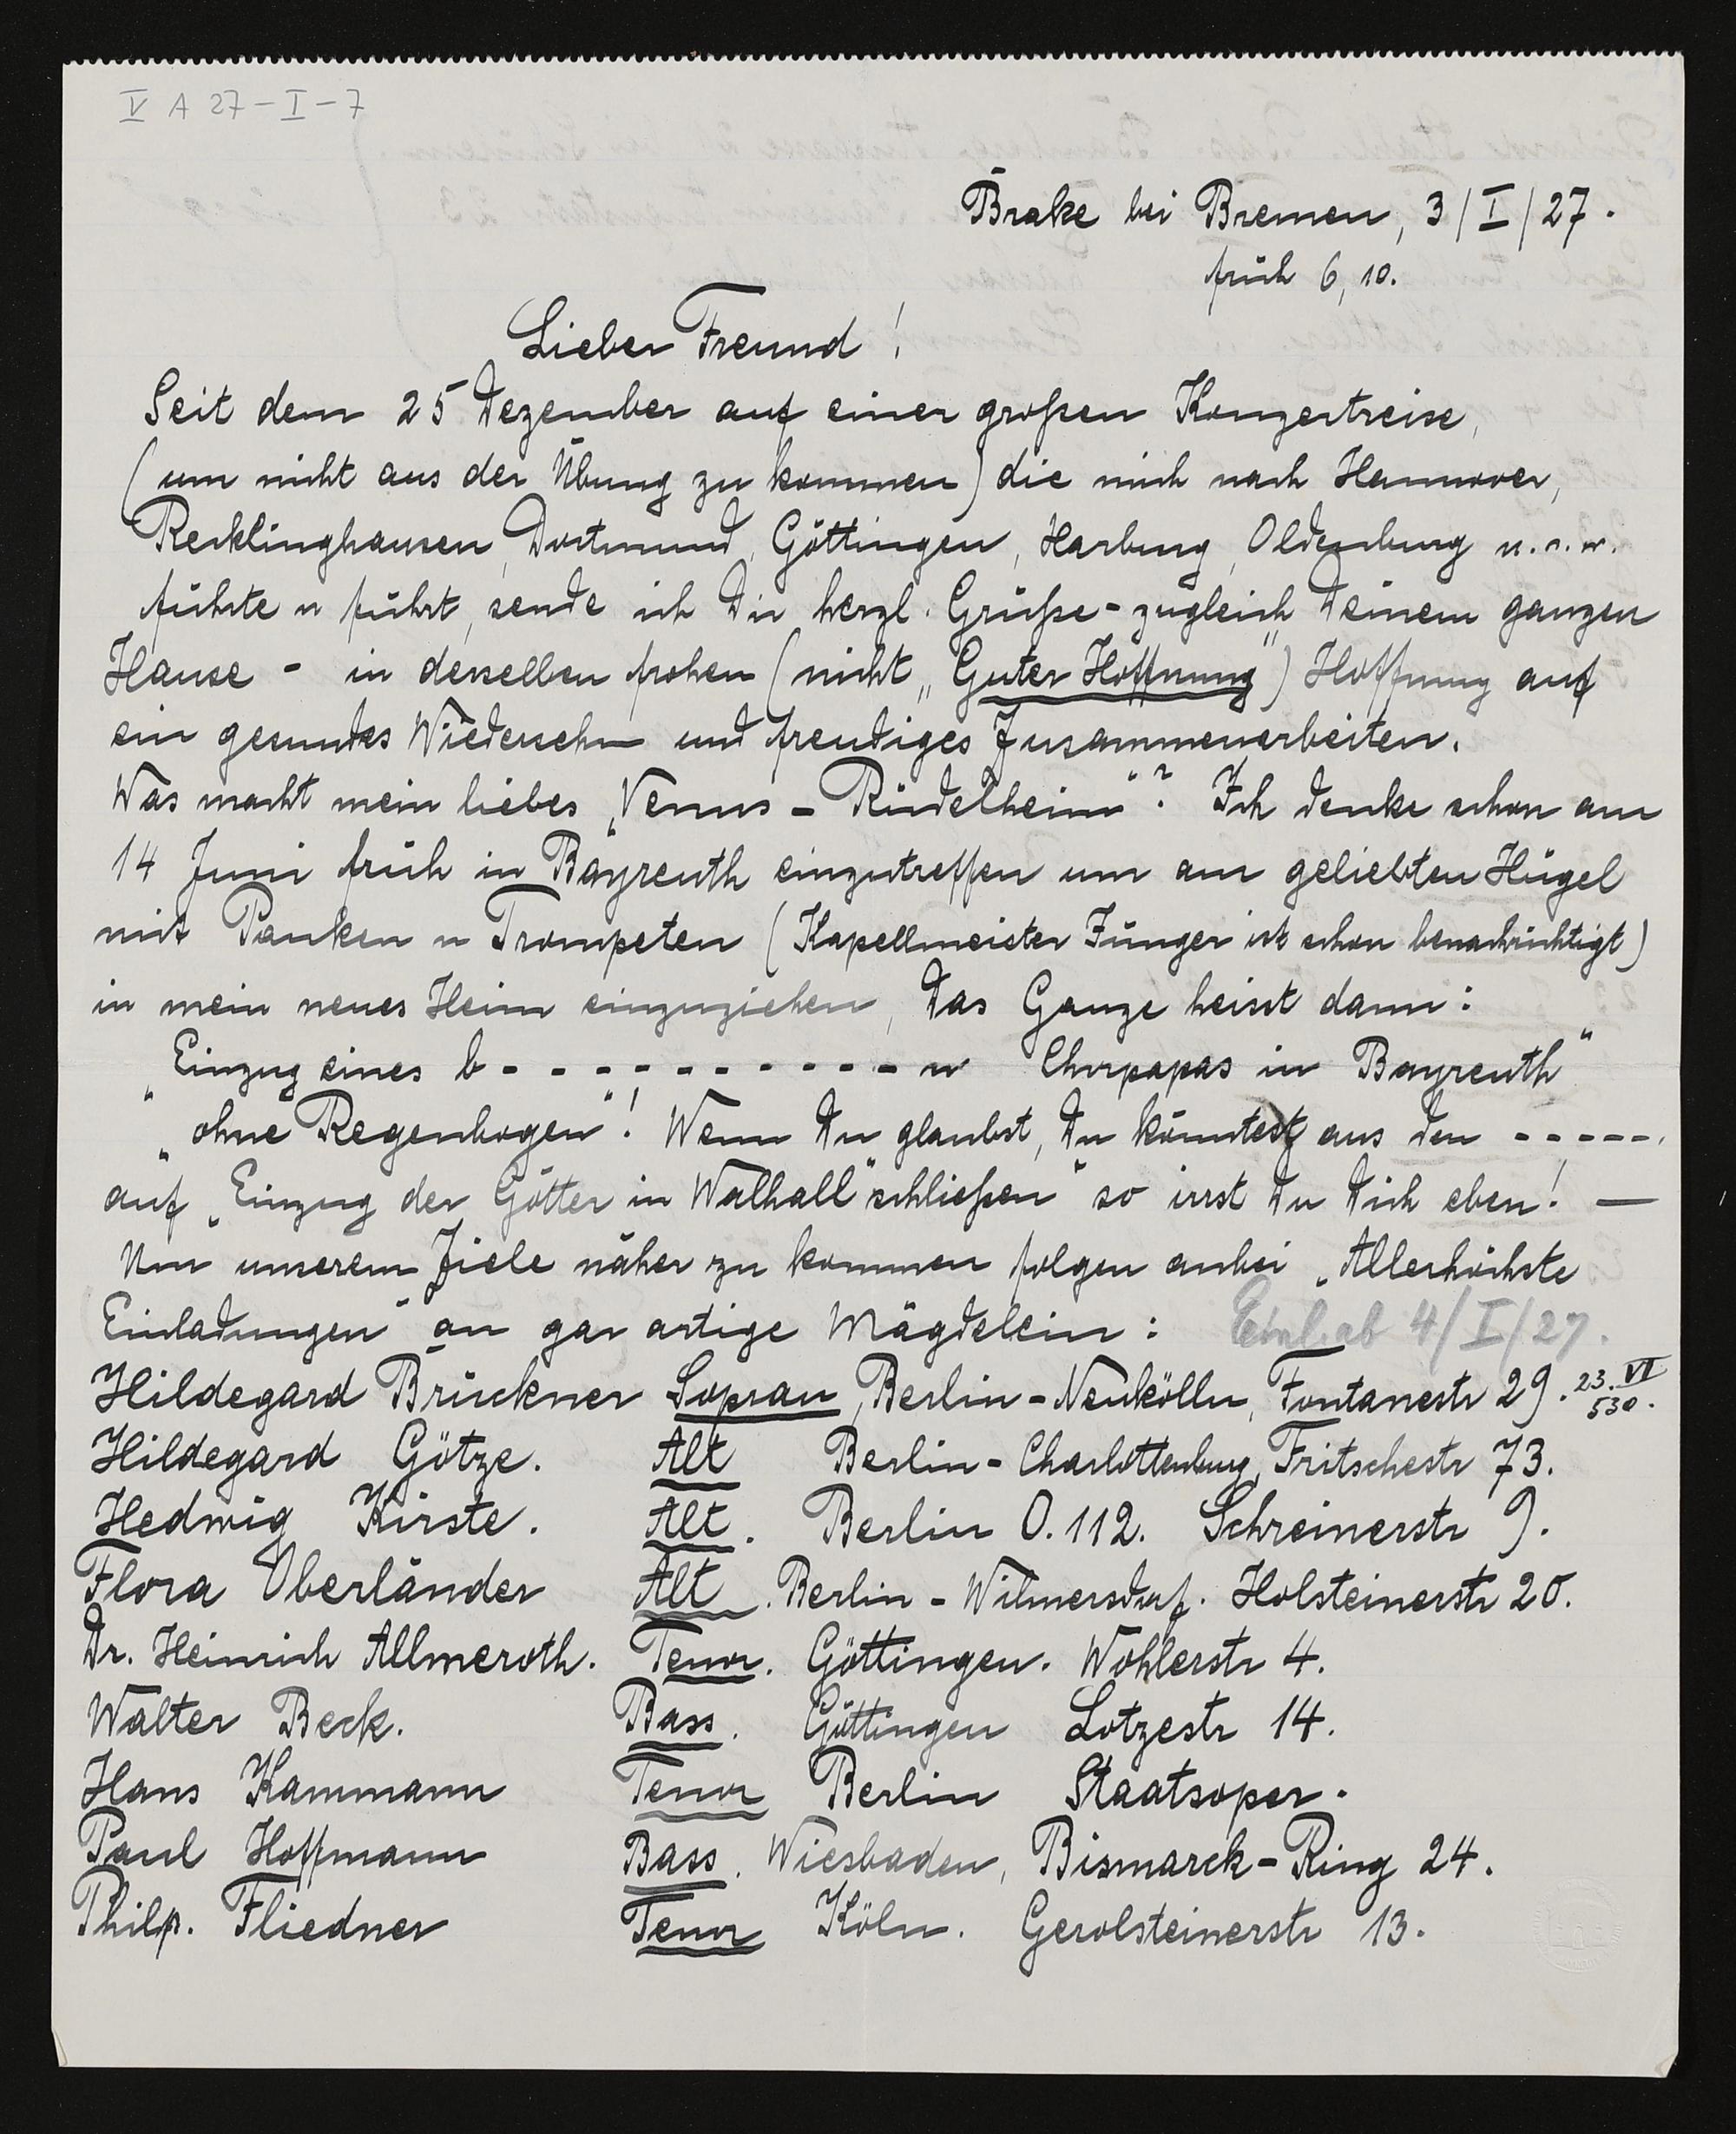 V A 27-I-7
Brake bei Bremen, 3/I/27.
früh 6,10.
Lieber Freund!
Seit dem 25 Dezember auf einer großen Konzertreise,
(um nicht aus der Übung zu kommen) die mich nach Hannover,
Recklinghausen, Dortmund, Göttingen, Harburg, Oldenburg u.s.w.
führte u führt, sende ich Dir herzl. Grüße - zugleich Deinem ganzen
Hause - in derselben frohen (nicht „Guter Hoffnung“) Hoffnung auf
ein gesundes Wiedersehn und freudiges Zusammenarbeiten.
Was macht mein liebes „Venus-Rüdelheim“? Ich denke schon am
14 Juni früh in Bayreuth einzutreffen um am geliebten Hügel
mit Pauken u Trompeten (Kapellmeister Jünger ist schon benachrichtigt)
in mein neues Heim einzuziehen, Das Ganze heisst dann:
„Einzug eines b- - - - - - - - - - - n Chorpapas in Bayreuth“
„ohne Regenbogen“! Wenn Du glaubst, Du könntest aus den - - - - -.
auf „Einzug der Götter in Walhall“ schließen“ so irrst Du Dich eben! —
Um unserem Ziele näher zu kommen folgen anbei „Allerhöchste
Einladungen“ an gar artige Mägdelein: Einl. ab 4/I/27.
Hildegard Brückner Sopran, Berlin-Neukölln, Fontanestr 29. 23. VI 530.
Hildegard Götze. Alt Berlin-Charlottenburg, Fritschestr 73.
Hedwig Kirste. Alt. Berlin O.112. Schreinerstr 9.
Flora Oberländer Alt. Berlin-Wilmersdorf. Holsteinerstr 20.
Dr. Heinrich Allmeroth. Tenor. Göttingen. Wöhlerstr 4.
Walter Beck. Bass. Göttingen Lotzestr 14.
Hans Kammann Tenor Berlin Staatsoper.
Paul Hoffmann Bass. Wiesbaden, Bismarck-Ring 24.
Philp. Fliedner Tenor Köln. Gerolsteinerstr 13.